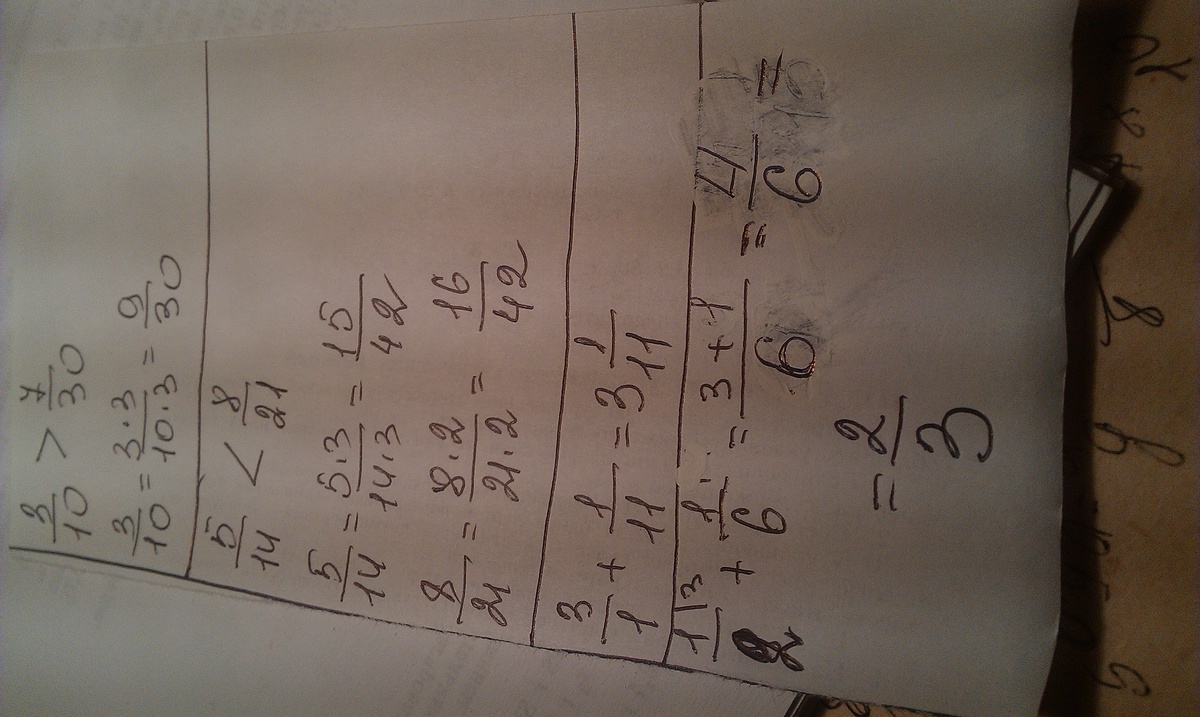 3/10 > 7/30
3/10 = 3·3/10·3 = 9/30
5/14 < 8/21
5/14 = 5·3/14·3 = 15/42
8/21 = 8·2/21·2 = 16/42
3/1 + 1/11 = 3 1/11
1\3/2 + 1/6 = 3+1/6 = 4/6 =
= 2/3